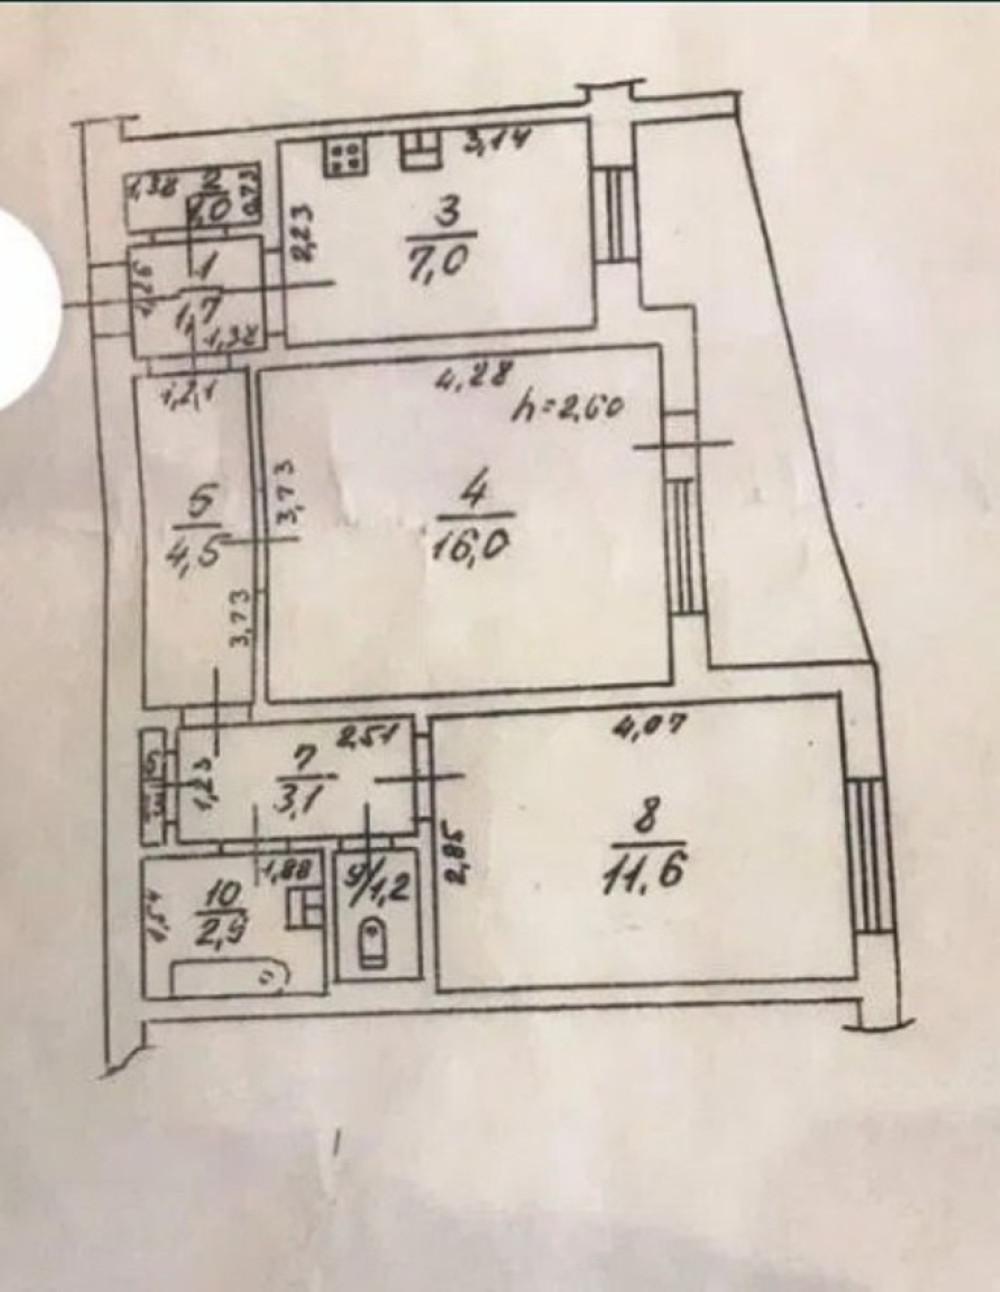 3,14
1,38
2
1,0
0,73
3
7,0
2,23
1
1,7
1,26
1,38
1,21
4,28
h=2,60
3,73
4
16,0
5
4,5
3,73
2,51
7
3,1
1,23
6
4,07
8
11,6
2,85
1,88
9/1,2
10
2,9
1,54